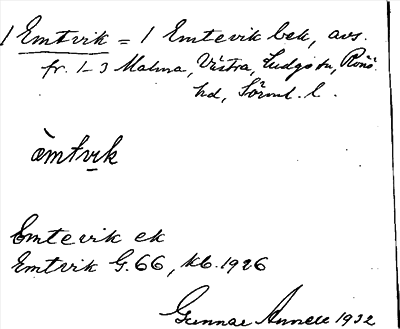 1 Emtvik = 1 Emtevik bek, avs.
fr. 1-3 Malma, Västra, Ludgo sn, Rönö
hd, Södml. l.
àmtvik
Emtevik ek
Emtvik G. 66, kb. 1926
Gunnar Annell 1932